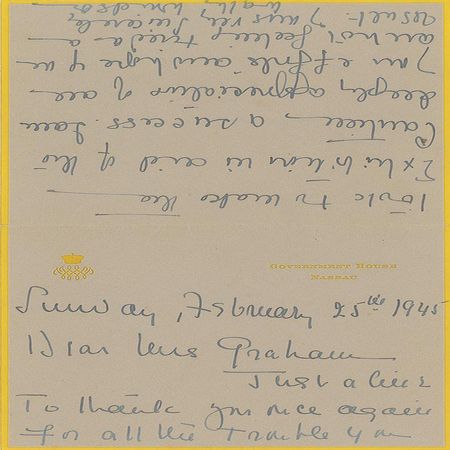 GOVERNMENT HOUSE
NASSAU
Sunday, February 25th 1945
Dear Mrs Graham
Just a line
To thank you once again
for all the trouble you
took to make the
Exhibition in aid of the
Canteen a success. I am
deeply appreciative of all
your efforts and hope you
are not feeling tired as a
result - I am very sincerely
Wallis Windsor